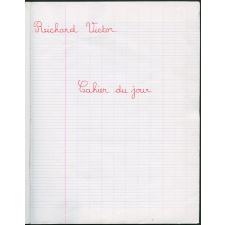 Richard Victor
Cahier du jour